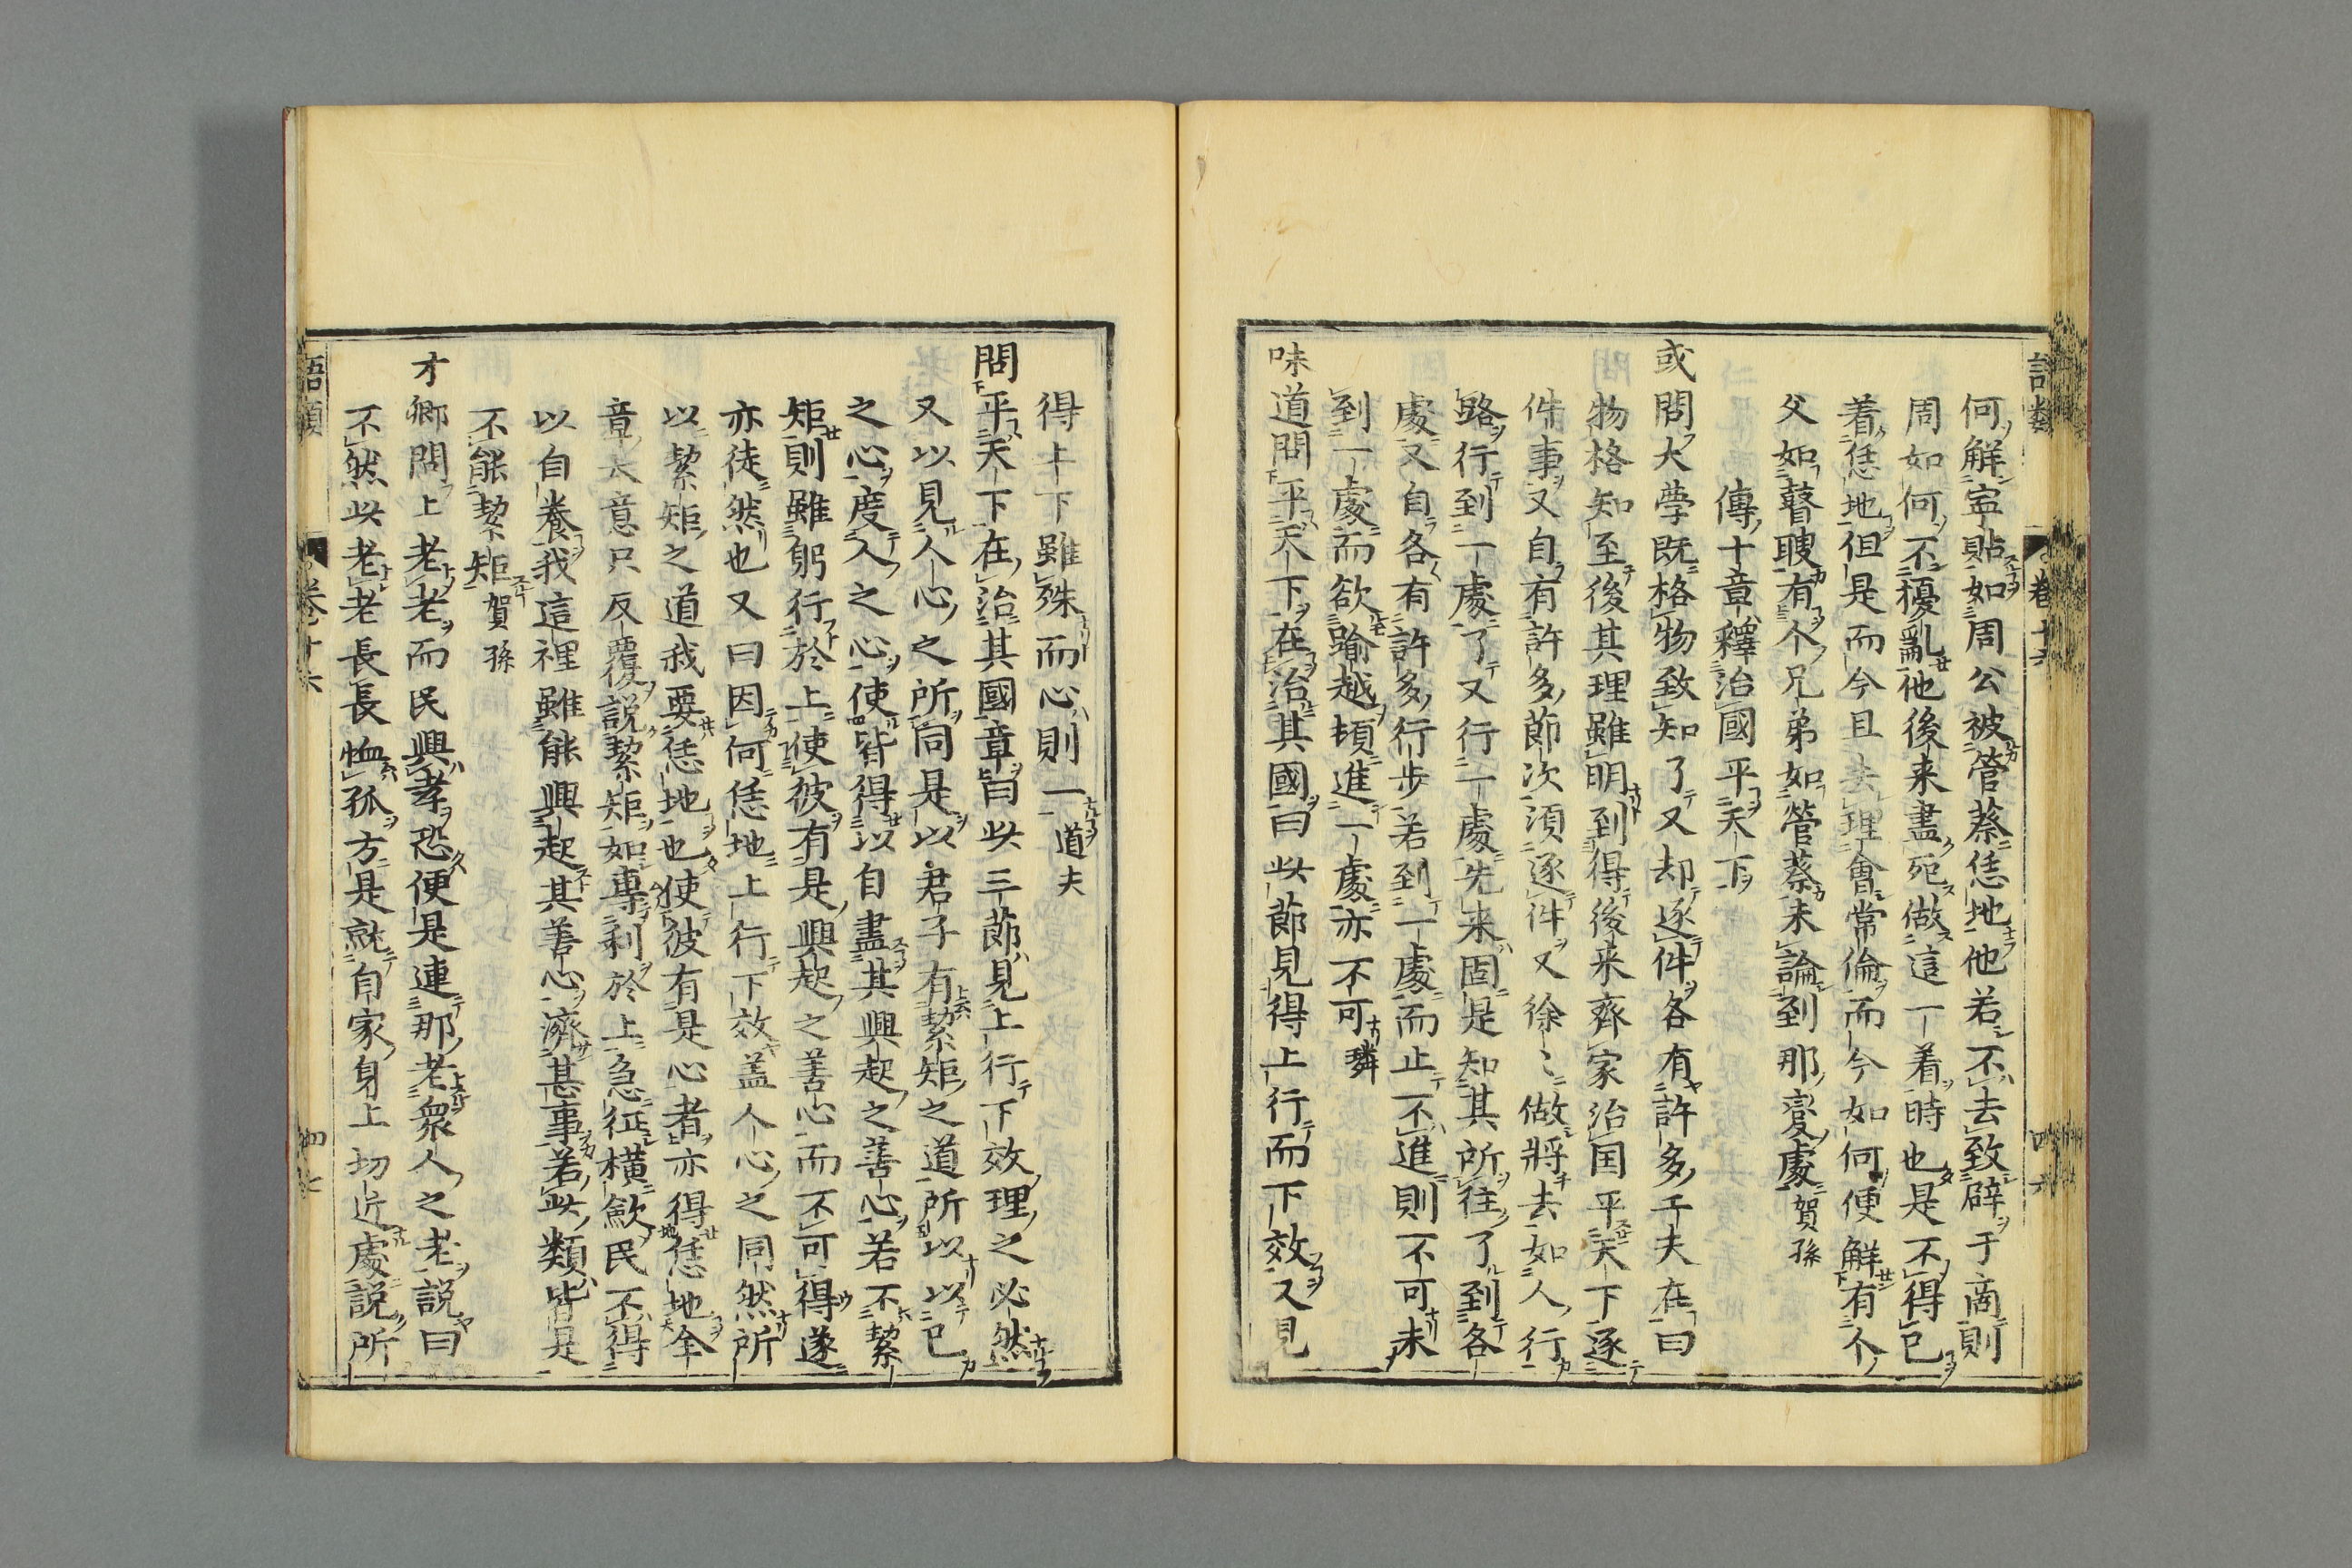 何解寧貼如周公被管蔡恁地他若不去致辟于商則
周如何不擾亂他後来盡死做這一着時也是不得已
着恁地但是而今且去理會常倫而今如何便解有个
父如瞽瞍有个兄弟如管蔡未論到那變處賀孫
傳十章釋治國平天下
或問大學既格物致知了又却逐件各有許多工夫在曰
物格知至後其理雖明到得後来齊家治国平天下逐
件事又自有許多節次須逐件又徐〻做將去如人行
路行到一處了又行一處先来固是知其所往了到各
處又自各有許多行步若到一處而止不進則不可未
到一處而欲踰越頓進一處亦不可璘
味道問平天下在治其國曰此節見得上行而下效又見
得上下雖殊而心則一道夫
問平天下在治其國章曰此三節見上行下效理之必然
又以見人心之所同是以君子有絜矩之道所以以已
之心度人之心使皆得以自盡其興起之善心若不絜
矩則雖躬行於上使彼有是興起之善心而不可得遂
亦徒然也又曰因何恁地上行下效盖人心之同然所
以絜矩之道我要恁地也使彼有是心者亦得恁地全
章大意只反覆說絜矩如專利於上急征横歛民不得
以自養我這裡雖能興起其善心濟甚事若此類皆是
不能絜矩賀孫
才卿問上老老而民興孝恐便是連那老衆人之老說曰
不然此老老長長恤孤方是就自家身上切近處說所
語類
卷十六
四六
語類
卷十六
四七